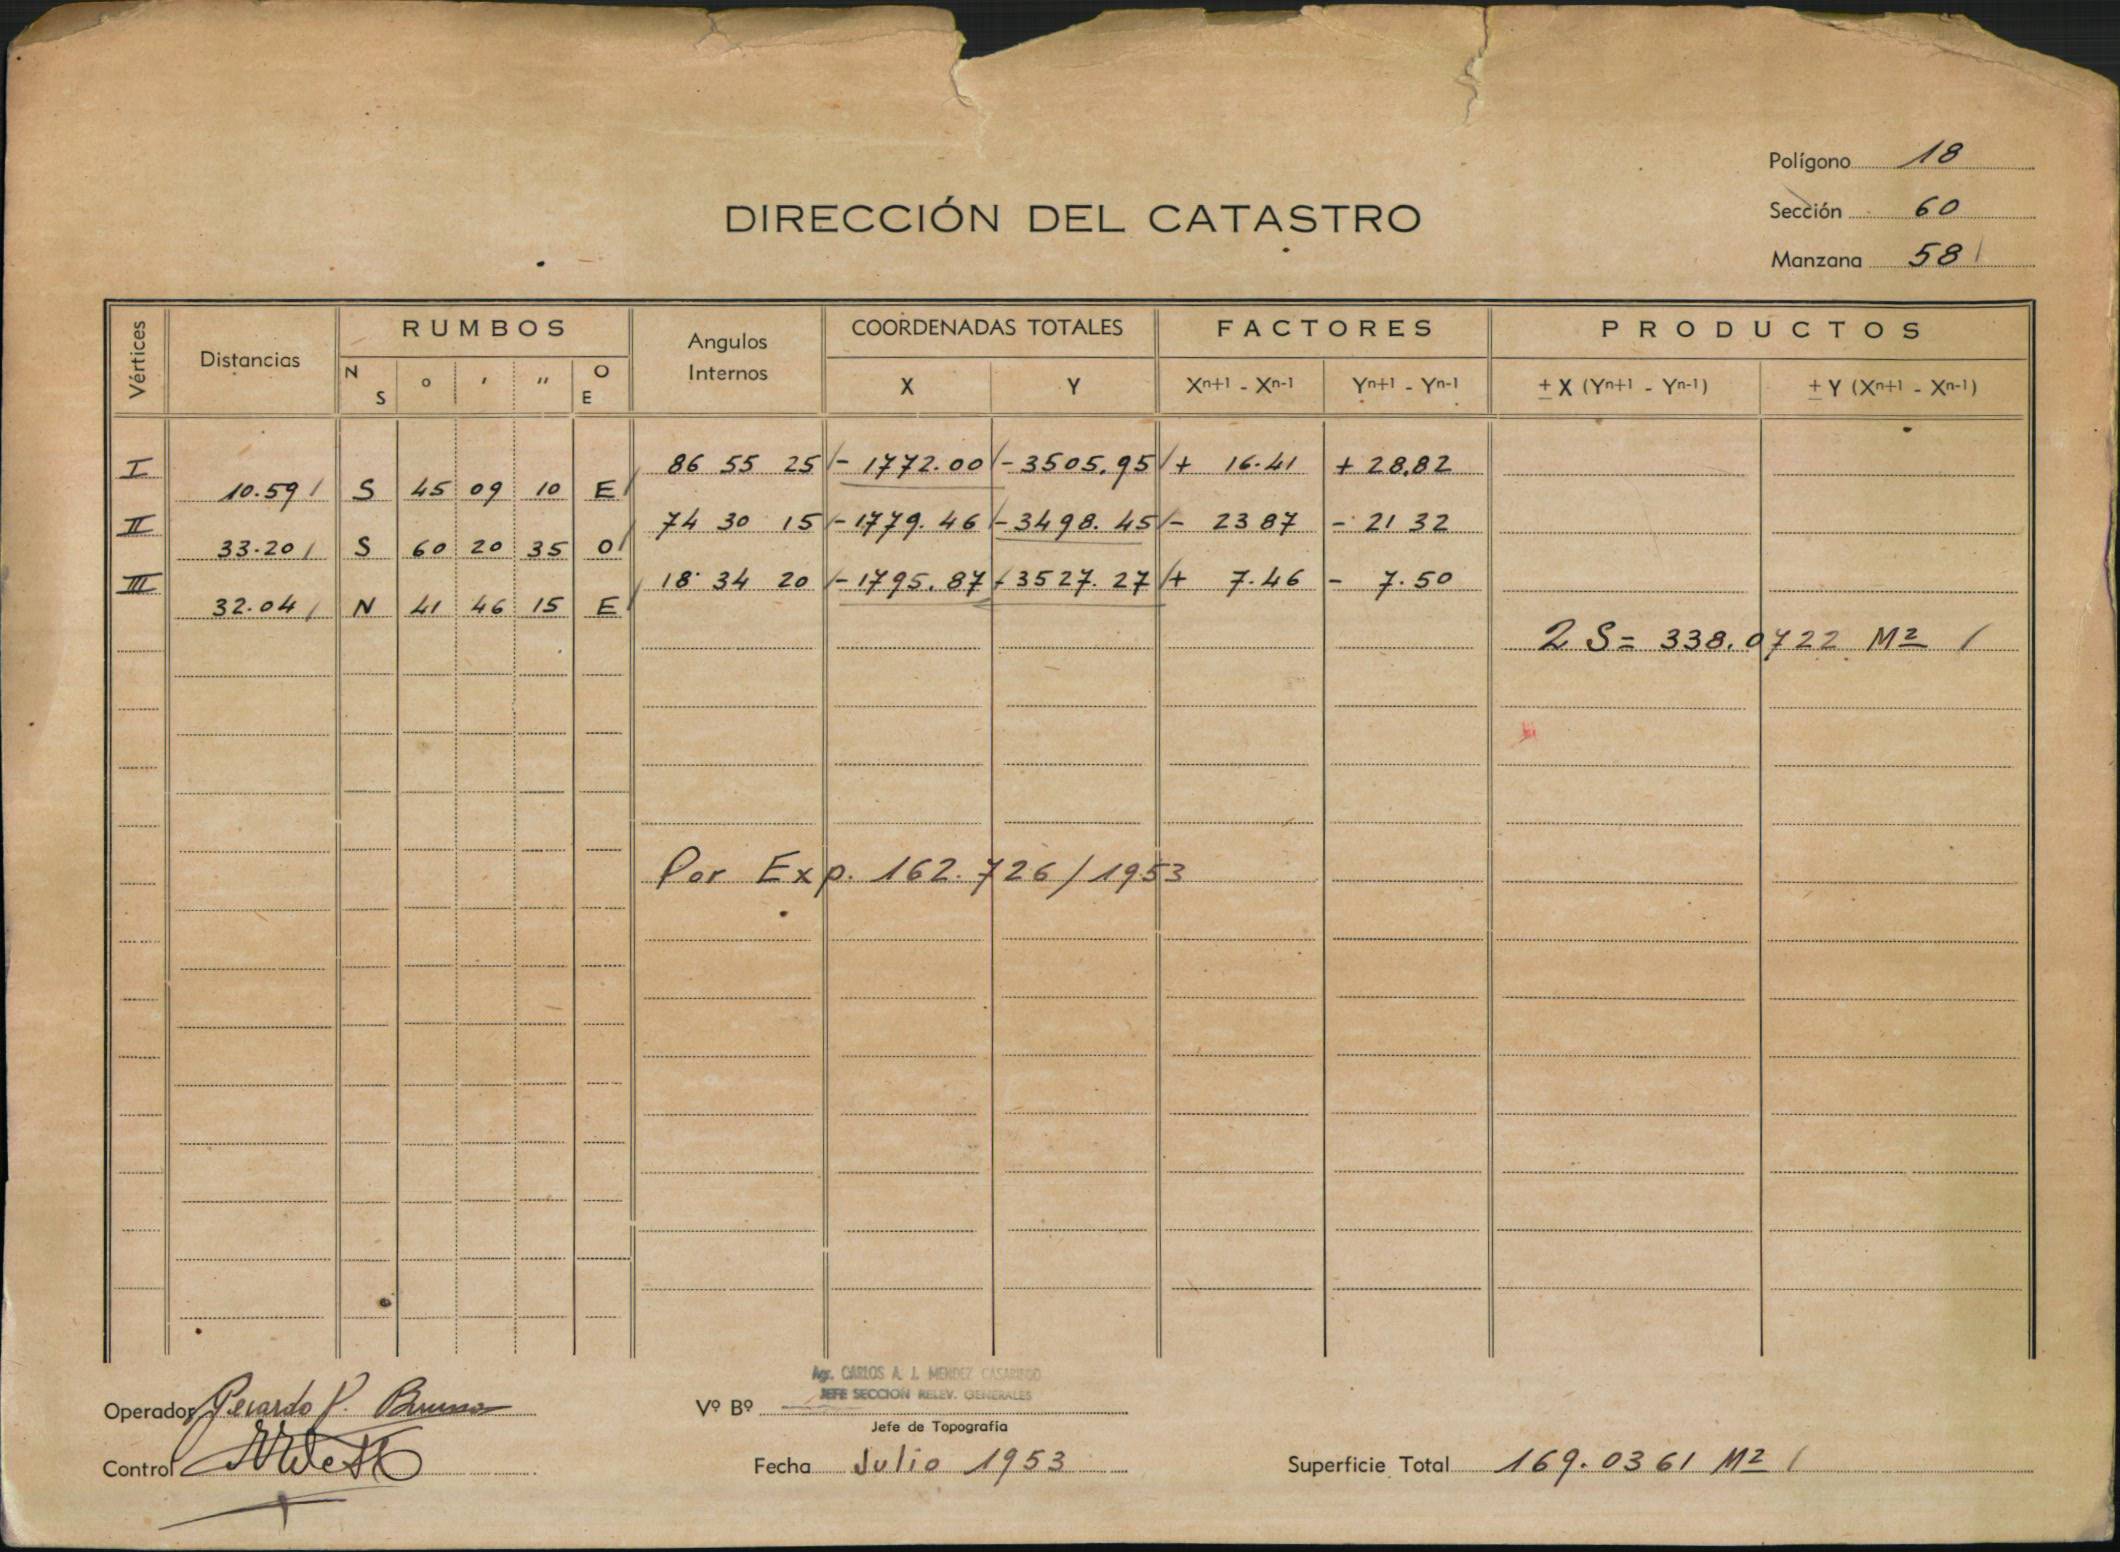 Polígono 18
Sección 60
Manzana 58
DIRECCIÓN DEL CATASTRO
Vértices Distancias RUMBOS Angulos Internos COORDENADAS TOTALES FACTORES PRODUCTOS
N S ° ' " O E X Y Xn+1 - Xn-1 Yn+1 - Yn-1 ± X (Yn+1 - Yn-1) ± Y (Xn+1 - Xn-1)
I 86 55 25 - 1772.00 - 3505.95 + 16.41 + 28.82
10.59 S 45 09 10 E
II 74 30 15 - 1779.46 - 3498.45 - 23 87 - 21 32
33.20 S 60 20 35 O
III 18 34 20 - 1795.87 - 3527.27 + 7.46 - 7.50
32.04 N 41 46 15 E
2 S = 338.0722 M2
Por Exp. 162.726/1953
Agr. CARLOS A. J. MENDEZ CASARIEGO
JEFE SECCION RELEV. GENERALES
Operador Gerardo P. Vº Bº
Jefe de Topografía
Control Fecha Julio 1953 Superficie Total 169.0361 M2